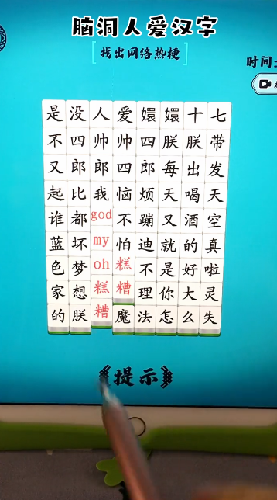 脑洞人爱汉字
[找出网络热梗]
时间:
是没人爱嬛嬛十七
不四帅帅四朕朕带
又郎郎四郎每出发
起比我恼烦天喝天
谁都god不蹦又酒空
蓝坏my怕迪就的真
色梦oh糕不是好啦
家想糕糟理你大灵
的朕糟魔法怎么失
提示